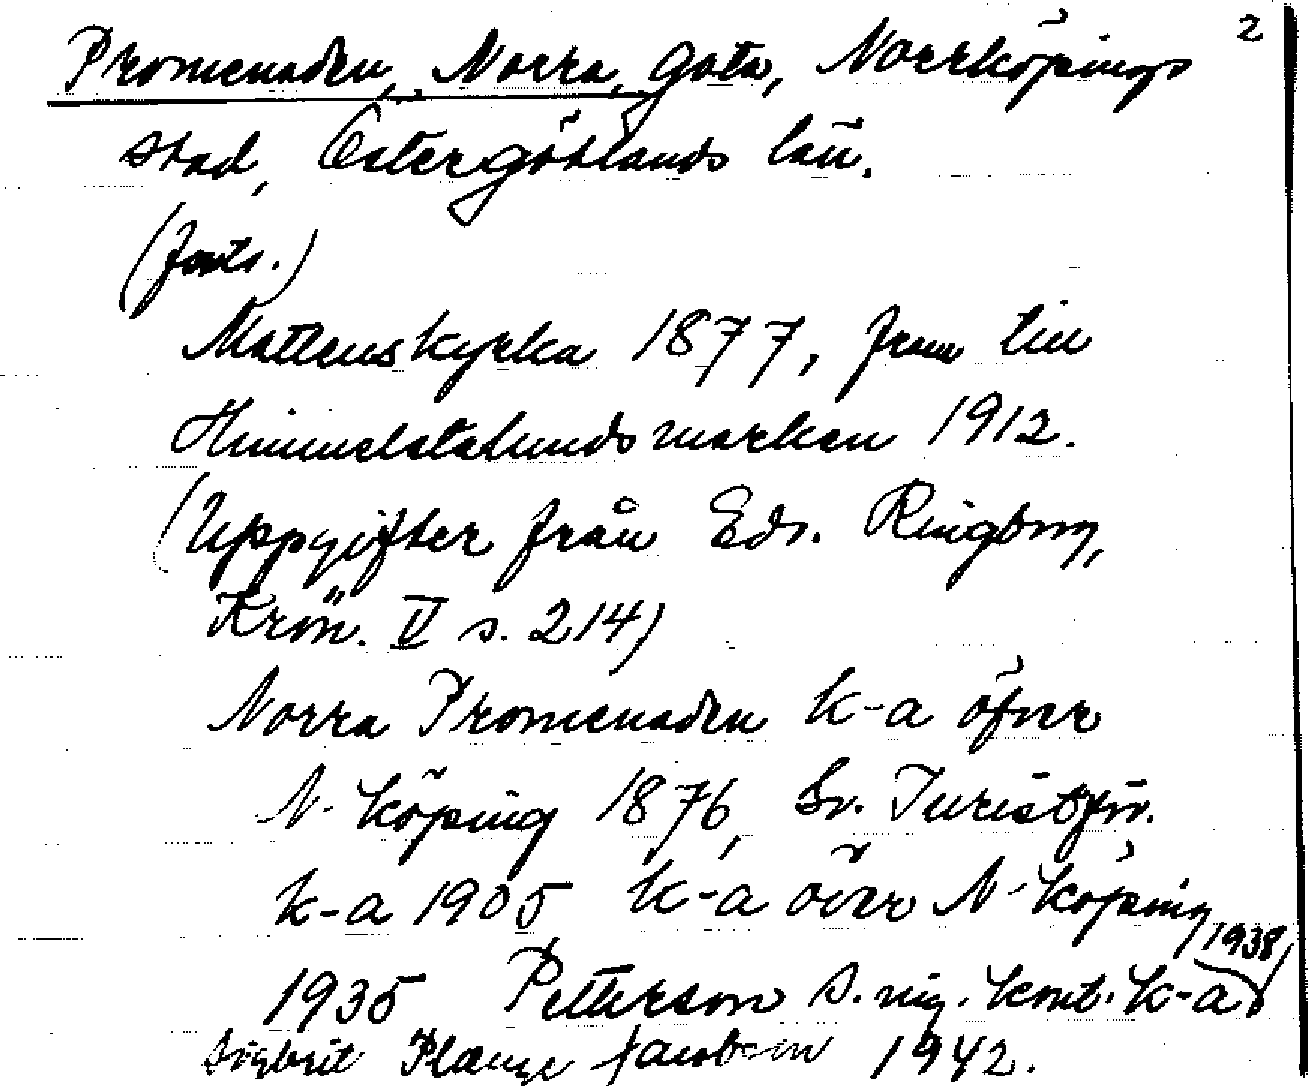 2
Promenaden, Norra, gata, Norrköpings
stad, Östergötlands län.
(forts.)
Matteuskyrka 1877, fram till
Himmelstalundsmarken 1912.
(Uppgifter från Edv. Ringborg,
Krön. IV s. 214)
Norra Promenaden k-a öfver
N-köping 1876, Sv. Turistför.
k-a 1905 k-a över N-köping
1938
1935 Petterson o. ing. kont. k-a
Sigbrit Plænge Jacobson 1942.